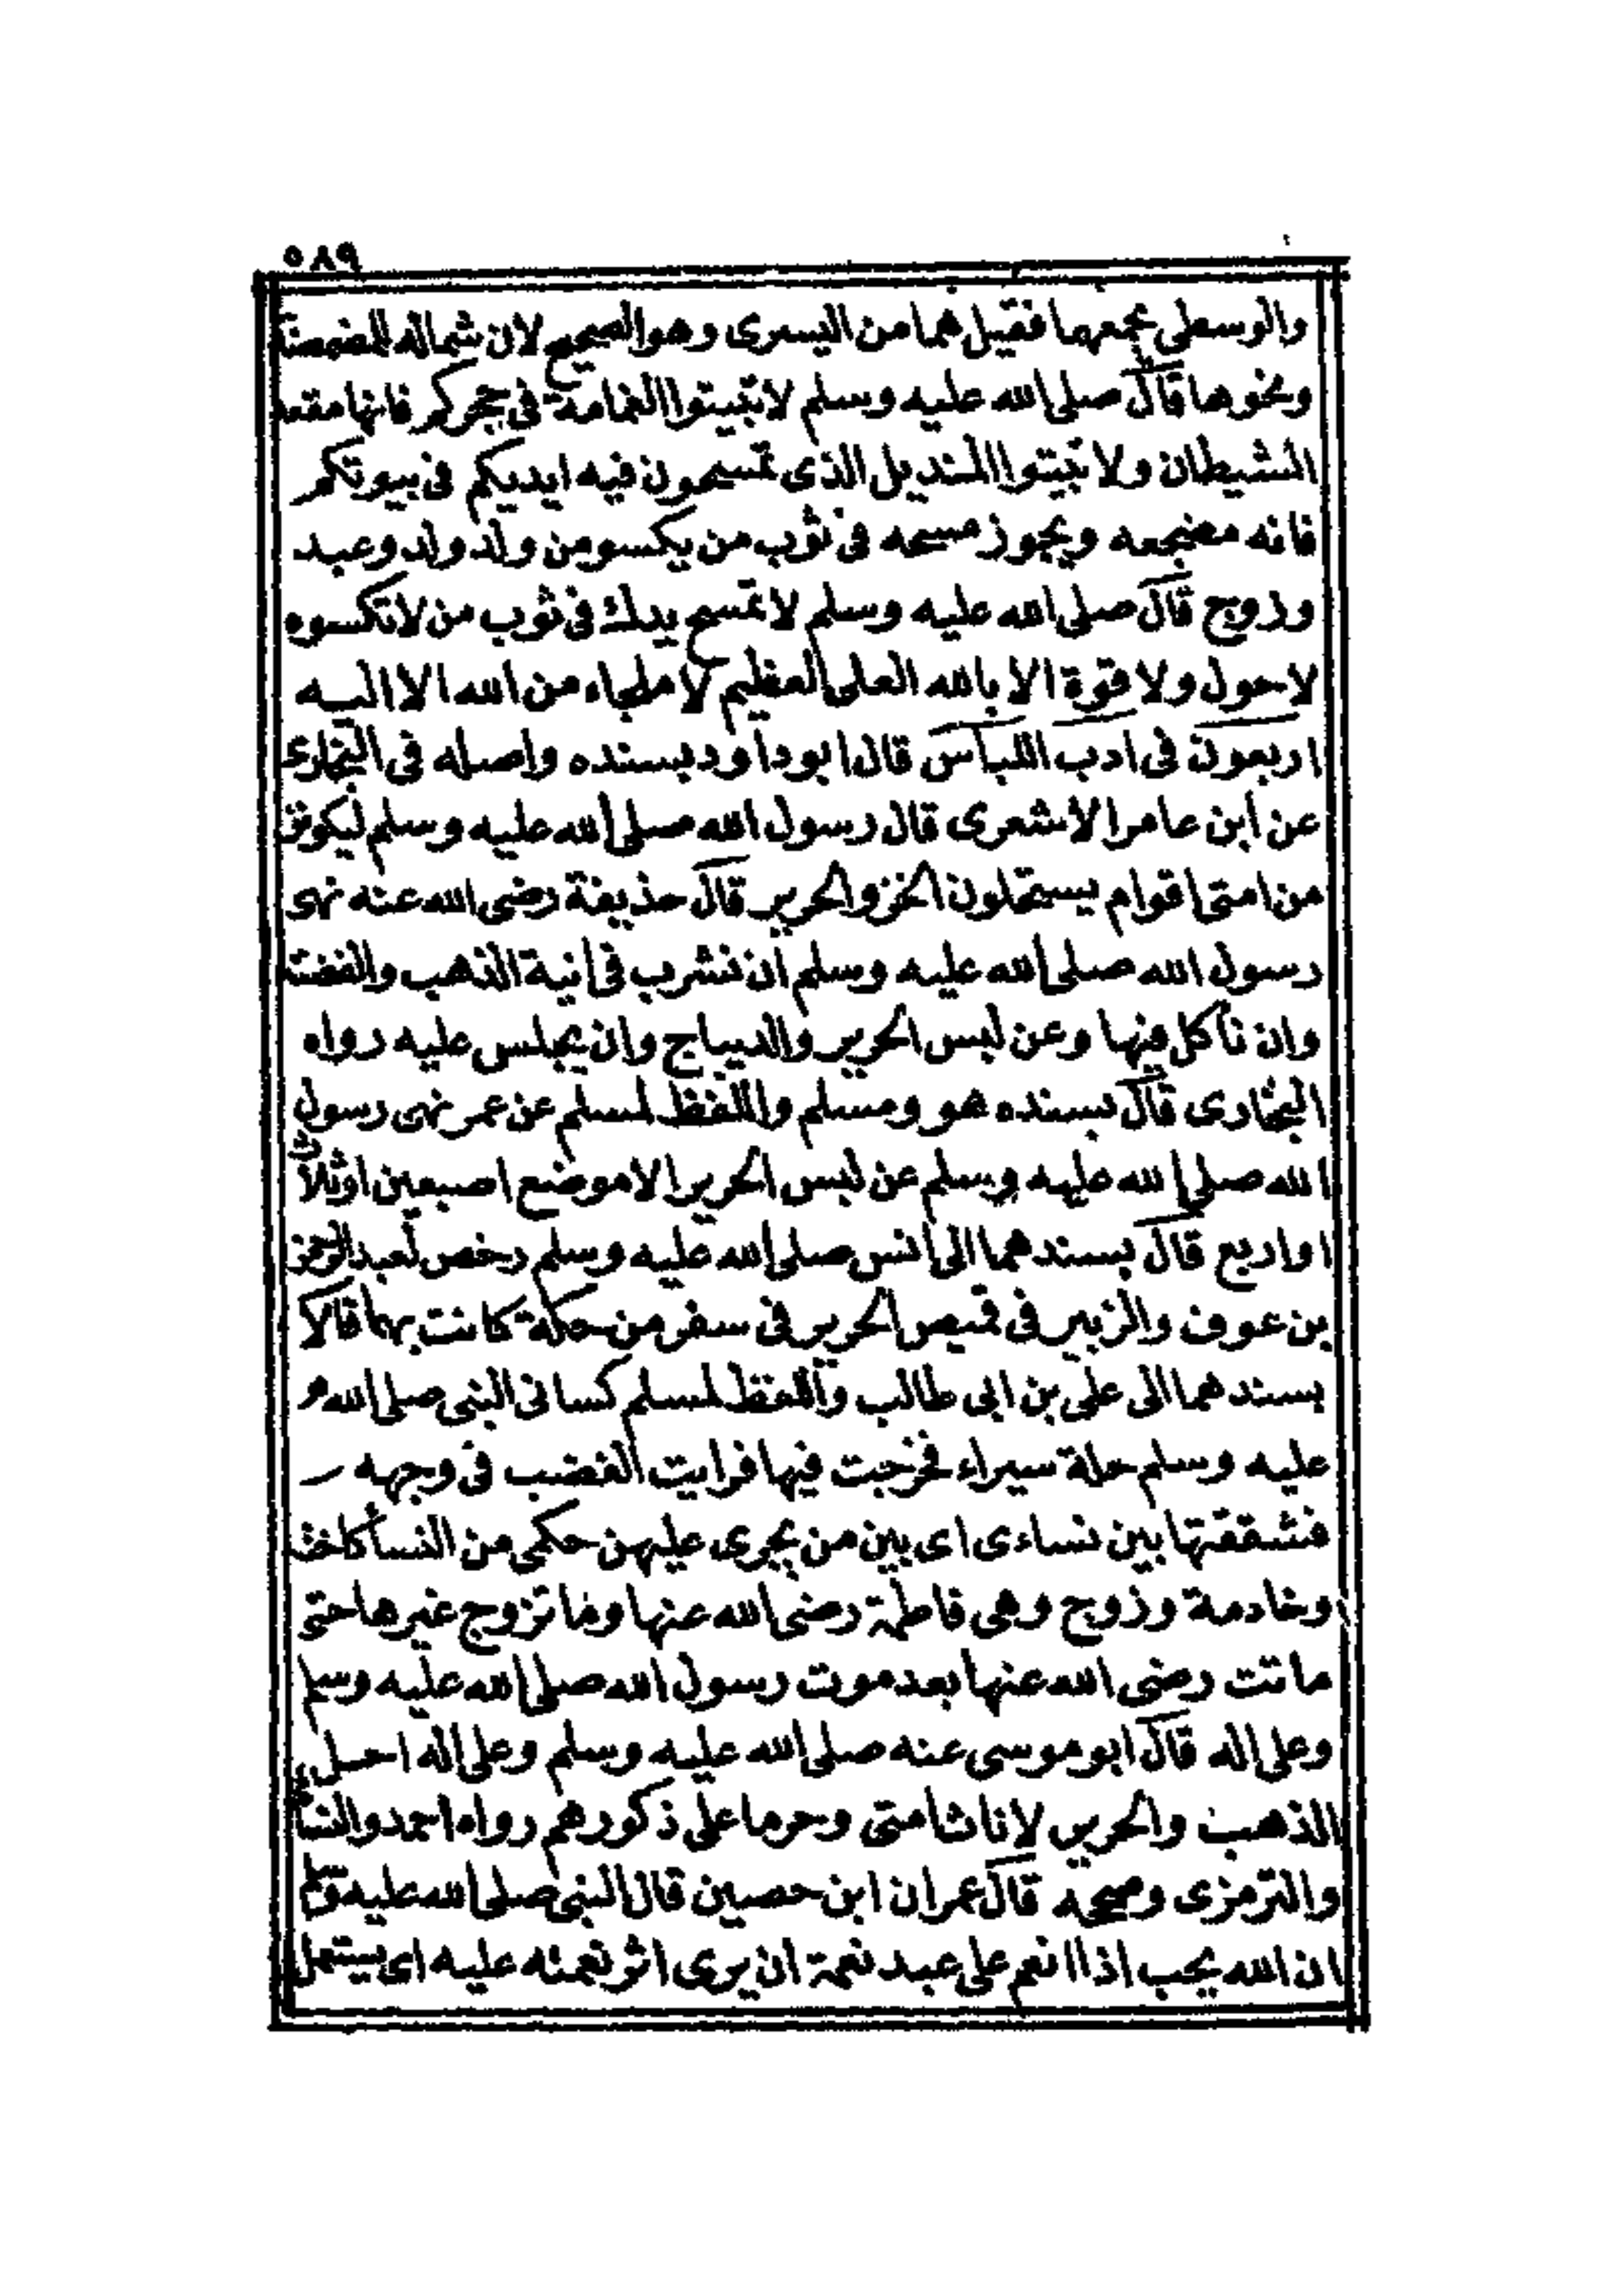 ٥٨٩
والوسطى يجمعها فقيل هما من اليسرى وهو الصحيح لان شماله للمضمضة
ونحوها قال صلى الله عليه وسلم لا تبيتوا القمامة في حجركم فانها مقعد
الشيطان ولا تبيتوا المنديل الذى تمسحون فيه ايديكم في بيوتكم
فانه مضجعه ويجوز مسحه في ثوب من يكسو من ولد ولد وعبد
وزوج قال صلى الله عليه وسلم لا تمسح يدك في ثوب من لا تكسوه
لا حول ولا قوة الا بالله العلى العظيم لا ملجاء من الله الا اليه
اربعون في ادب اللباس قال ابو داود بسنده واصله في البخارى
عن ابن عامر الاشعرى قال رسول الله صلى الله عليه وسلم ليكونن
من امتى اقوام يستحلون الخز والحرير قال حذيفة رضى الله عنه نهى
رسول الله صلى الله عليه وسلم ان نشرب في انية الذهب والفضة
وان نأكل فيها وعن لبس الحرير والديباج وان يجلس عليه رواه
البخارى قال بسنده هو ومسلم واللفظ لمسلم عن عمر نهى رسول
الله صلى الله عليه وسلم عن لبس الحرير الا موضع اصبعين او ثلاث
او اربع قال بسندهما الى انس صلى الله عليه وسلم رخص لعبد الرحمن
بن عوف والزبير في قميص الحرير في سفر من حكة كانت بهما قالا
بسندهما الى على بن ابى طالب واللفظ لمسلم كسانى النبى صلى الله
عليه وسلم حلة سيراء فخرجت فيها فرايت الغضب في وجهه
فشققتها بين نساءى اى بين من يجرى عليهن حكمى من النسأ كاخت
وخادمة وزوج وهى فاطمة رضى الله عنها وما تزوج غيرها حتى
ماتت رضى الله عنها بعد موت رسول الله صلى الله عليه وسلم
وعلى اله قال ابو موسى عنه صلى الله عليه وسلم وعلى اله احل
الذهب والحرير لاناث امتى وحرما على ذكورهم رواه احمد والنسأ
والترمزى وصححه قال عمران ابن حصين قال النبى صلى الله عليه وسلم
ان الله يحب اذا انعم على عبد نعمة ان يرى اثر نعمته عليه اى يستعمل